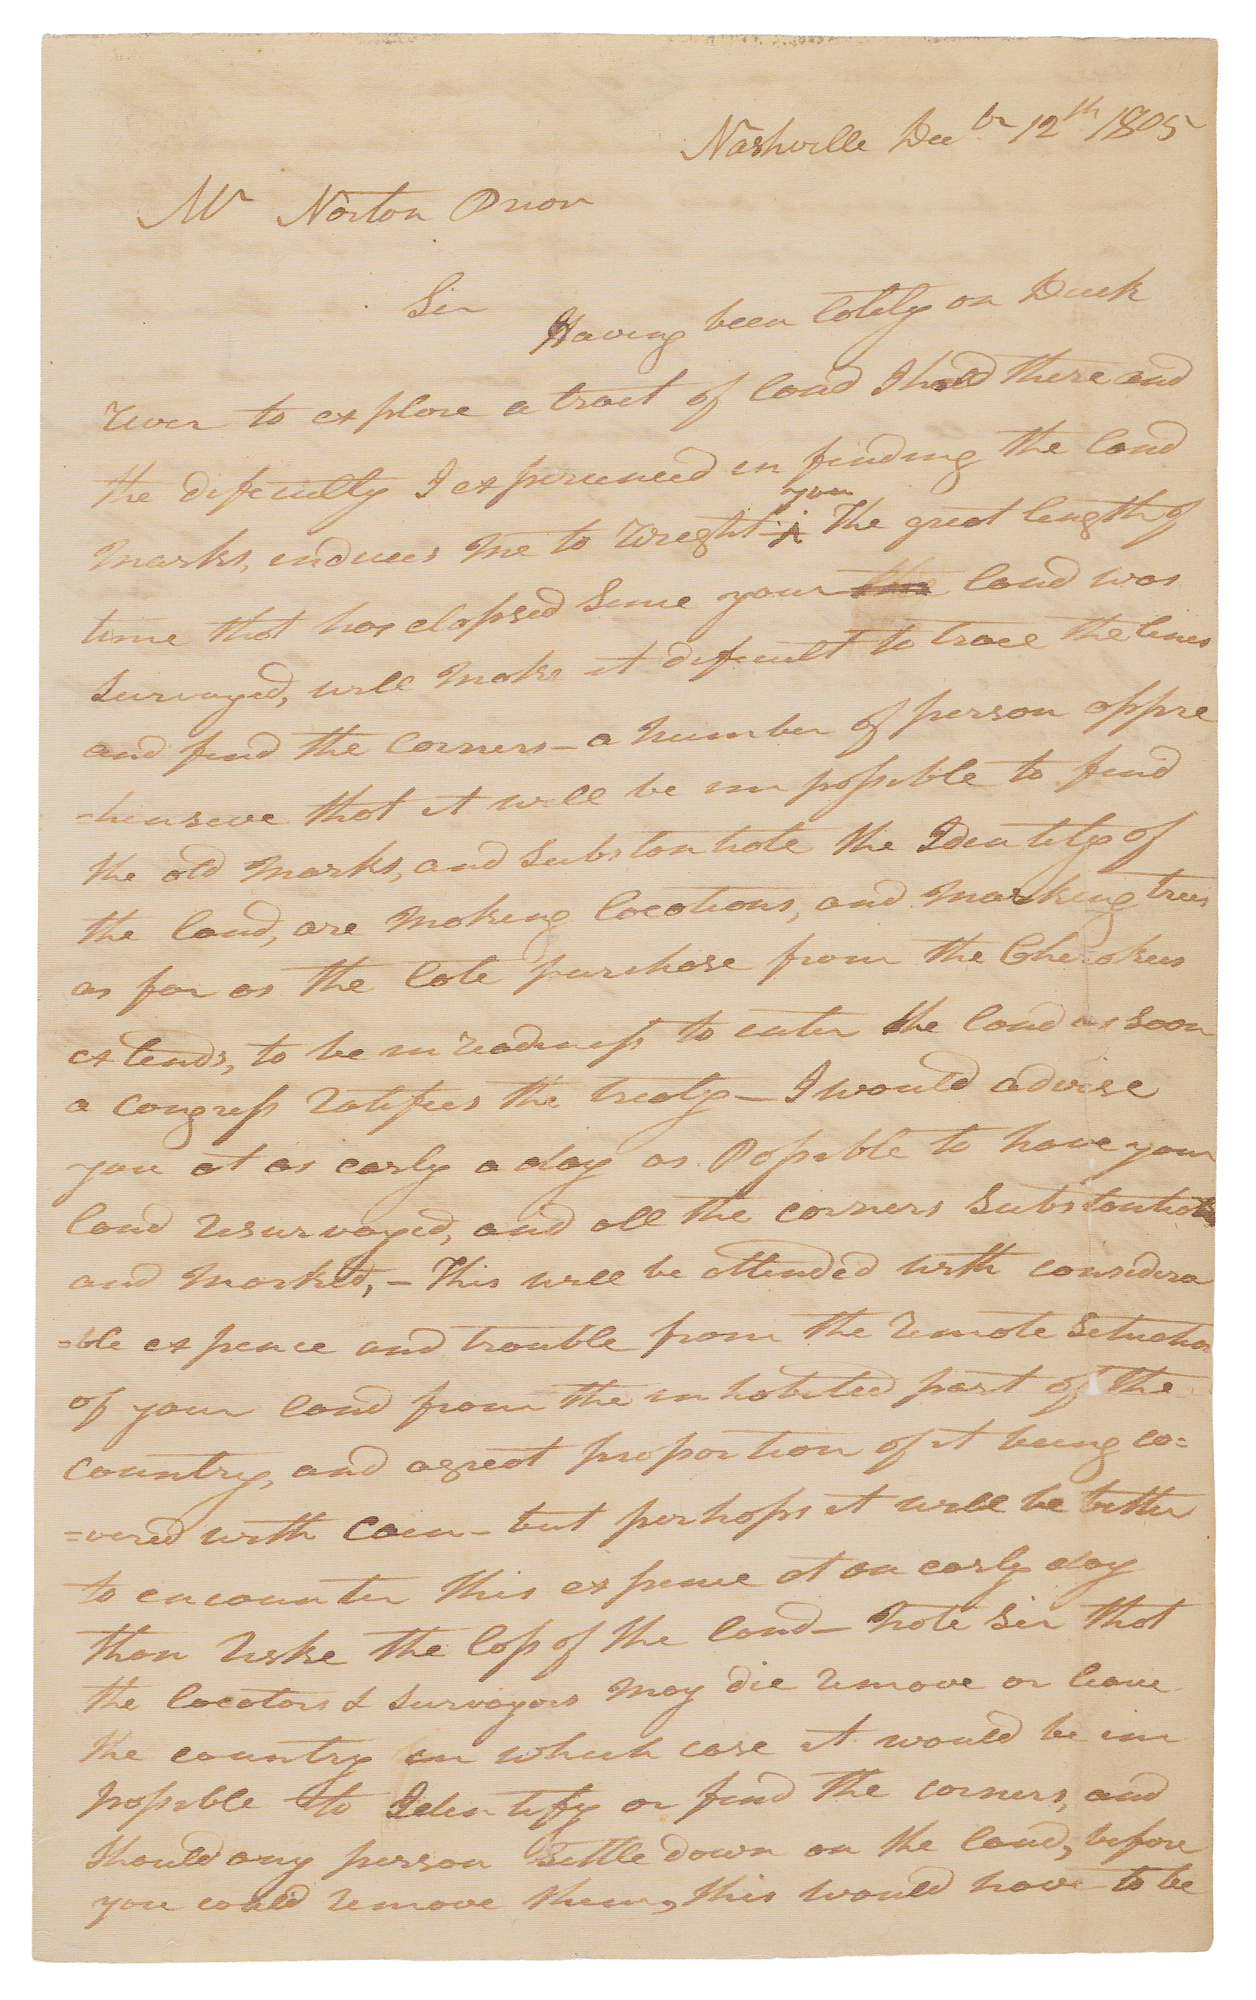 Nashville Decbr 12th 1805
Mr Norton Prior
Sir
Having been lately on Duck
river to explore a tract of land I hold there and
the dificulty I experienced in finding the land
marks, induces me to wreght you The great length of
time that has elapsed Since your land was
Survayed, will make it dificult to trace the lines
and find the Corners – a Number of person appre
=hensive that it will be impossible to find
the old marks, and Substantiate the Identity of
the land, are Making locations, and Marking trees
as far as the late purchase from the Cherokees
extends, to be in readiness to enter the land as Soon
a Congress ratifies the treaty – I would advise
you at as early a day as Possible to have your
land resurvayed, and all the corners Substantiated
and Marked, – This will be attended with considera
=ble expence and trouble from the remote Situation
of your land from the inhabited part of the
Country, and agreat proportion of it being co=
=vered with Cain – but perhaps it will be better
to encounter this expence at an early day
than riske the loss of the land – Note Sir that
the locators & Survayors May die remove or leave
the country in which case it would be im
possible to Identify or find the corners, and
Should any person Settle down on the land, before
you could remove them, this would have to be